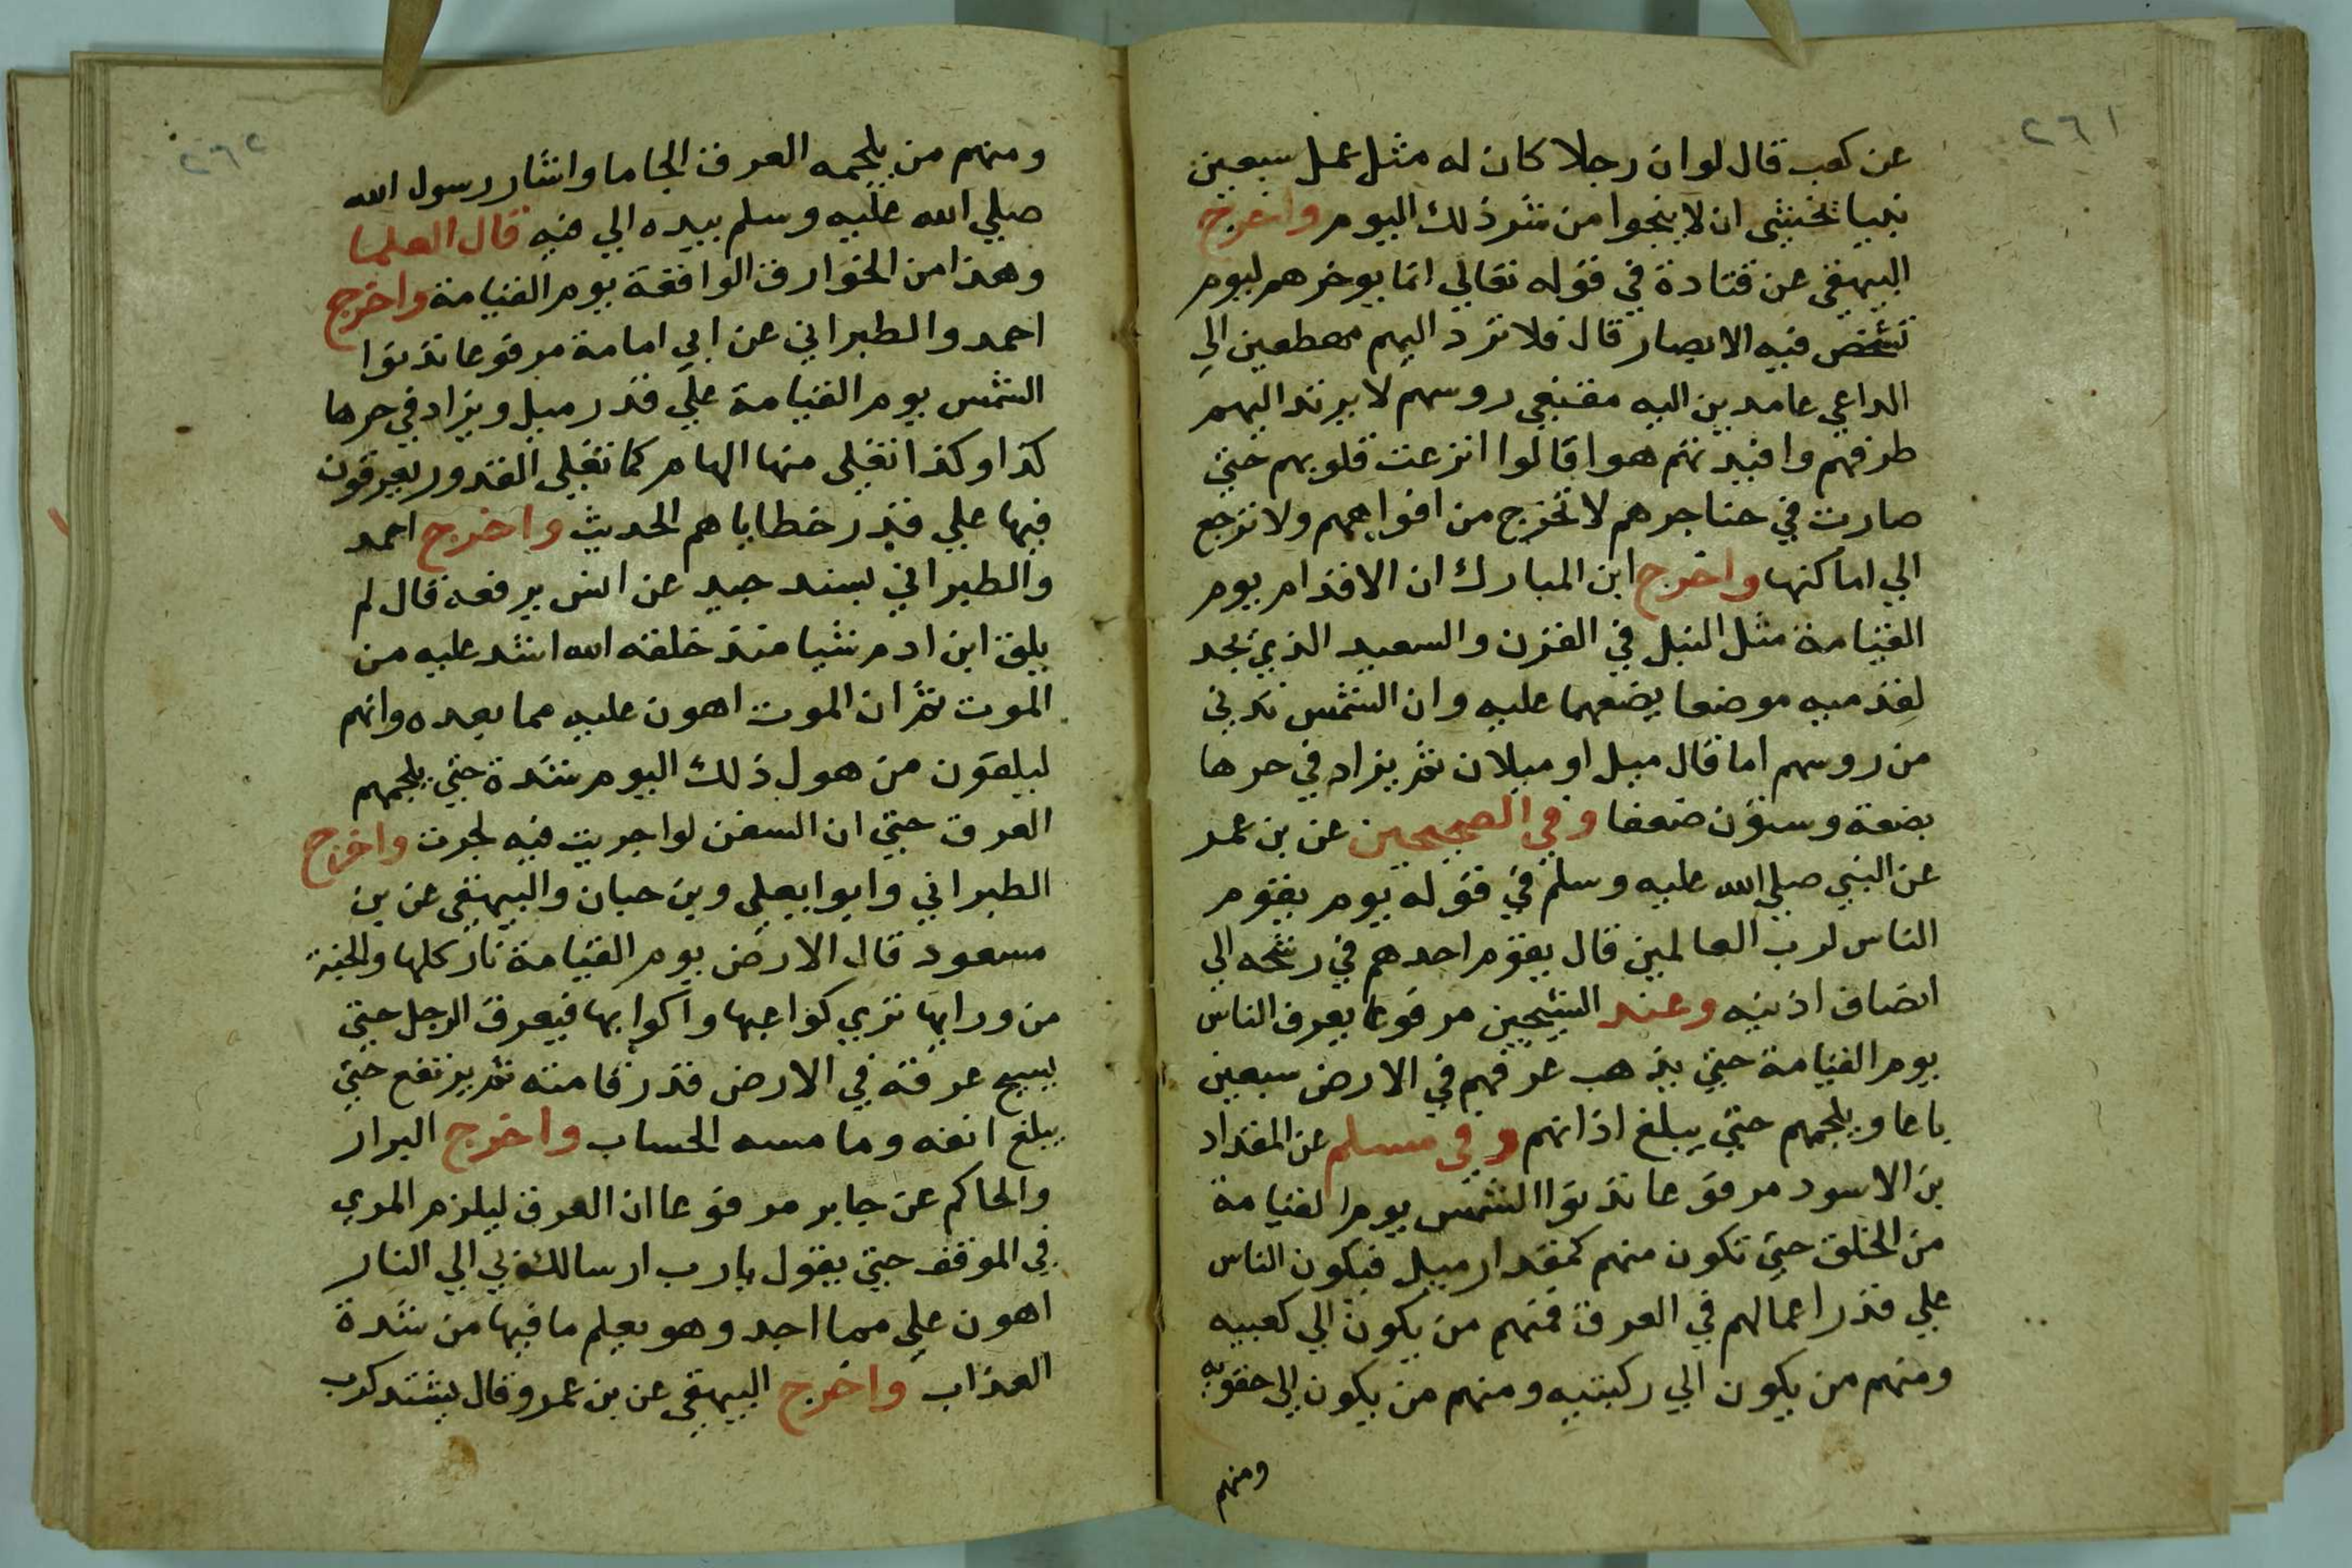 ٢٦١
عن كعب قال لو ان رجلا كان له مثل عمل سبعين
نبيا لخشي ان لا ينجوا من شر ذلك اليوم واخرج
البيهقي عن قتادة في قوله تعالي انما يوخرهم ليوم
تشخص فيه الابصار قال فلا ترد اليهم مهطعين الي
الداعي عامدين اليه مقنعي روسهم لا يرتد اليهم
طرفهم وافيدتهم هوا قالوا انزعت قلوبهم حتي
صارت في حناجرهم لا تخرج من افواههم ولا ترجع
الي اماكنها واخرج ابن المبارك ان الاقدام يوم
القيامة مثل النبل في القرن والسعيد الذي يجد
لقدميه موضعا يضعهما عليه وان الشمس تدني
من روسهم اما قال ميل او ميلان ثم يزاد في حرها
بضعة وستون ضعفا وفي الصحيحين عن بن عمر
عن النبي صلي الله عليه وسلم في قوله يوم يقوم
الناس لرب العالمين قال يقوم احدهم في رشحه الي
انصاف اذنيه وعند الشيخين مرفوعا يعرق الناس
يوم القيامة حتي يذهب عرقهم في الارض سبعين
باعا ويلجمهم حتي يبلغ اذانهم وفي مسلم عن المقداد
بن الاسود مرفوعا تدنوا الشمس يوم القيامة
من الخلق حتي تكون منهم كمقدار ميل فيكون الناس
علي قدر اعمالهم في العرق فمنهم من يكون الي كعبيه
ومنهم من يكون الي ركبتيه ومنهم من يكون الي حقويه
ومنهم
٢٦٢
ومنهم من يلجمه العرق الجاما واشار رسول الله
صلي الله عليه وسلم بيده الي فيه قال العلما
وهذا من الخوارق الواقعة يوم القيامة واخرج
احمد والطبراني عن ابي امامة مرفوعا تدنوا
الشمس يوم القيامة علي قدر ميل ويزاد في حرها
كذا وكذا تغلي منها الهام كما تغلي القدور يعرقون
فيها علي قدر خطاياهم الحديث واخرج احمد
والطبراني بسند جيد عن انس يرفعه قال لم
يلق ابن ادم شيا منذ خلقه الله اشد عليه من
الموت ثم ان الموت اهون عليه مما بعده وانهم
ليلقون من هول ذلك اليوم شدة حتي يلجمهم
العرق حتي ان السفن لو اجريت فيه لجرت واخرج
الطبراني وابوا يعلي وبن حبان والبيهقي عن بن
مسعود قال الارض يوم القيامة نار كلها والجنة
من ورايها تري كواعبها واكوابها فيعرق الرجل حتي
يسيح عرقه في الارض قدر قامته ثم يرتفع حتي
يبلغ انفه وما مسه الحساب واخرج البزار
والحاكم عن جابر مرفوعا ان العرق ليلزم المري
في الموقف حتي يقول يارب ارسالك بي الي النار
اهون علي مما اجد وهو يعلم ما فيها من شدة
العذاب واخرج البيهقي عن بن عمرو قال يشتد كرب